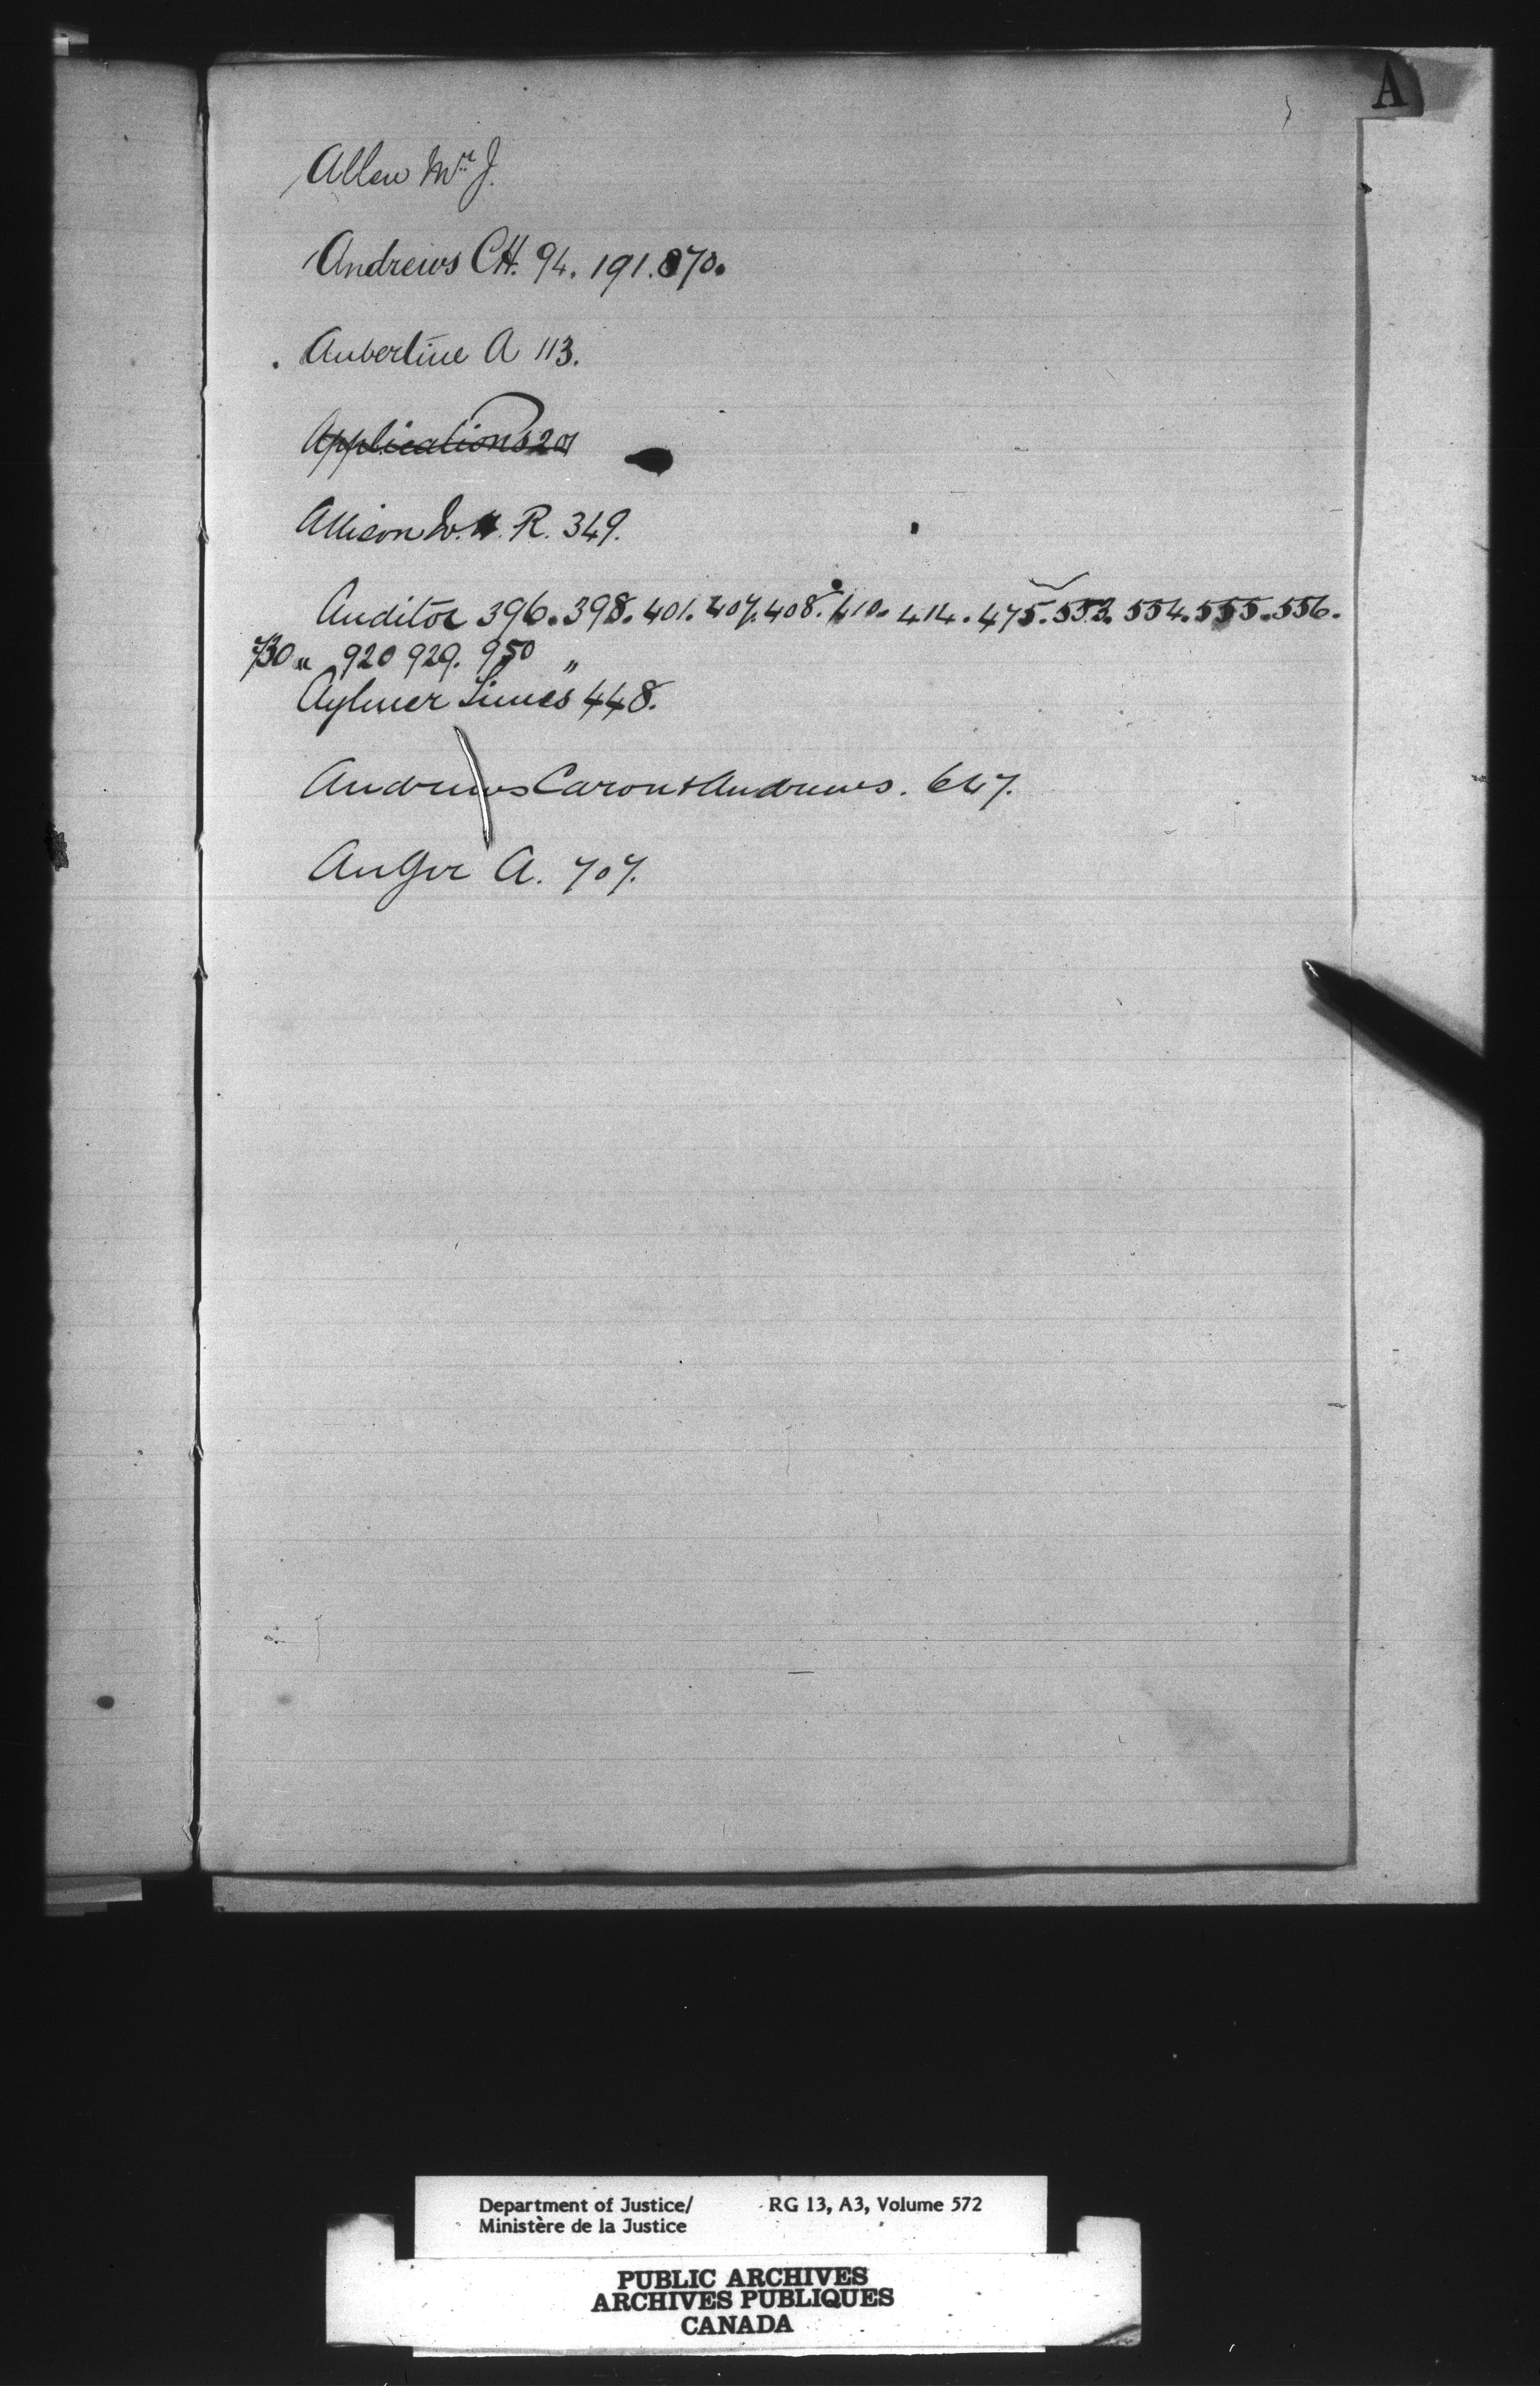 A
Allen Mr. J.
Andrews C.H. 94. 191. 870.
Aubertine A 113.
Applications 201
Allison W. R. 349.
Auditor 396. 398. 401. 407. 408. 410. 414. 475. 553. 554. 555. 556.
730 " 920 929. 950 "
Aylmer Times 448.
Andrews Caron & Andrews. 647.
Anger A. 707.
Department of Justice/ RG 13, A3, Volume 572
Ministère de la Justice
PUBLIC ARCHIVES
ARCHIVES PUBLIQUES
CANADA